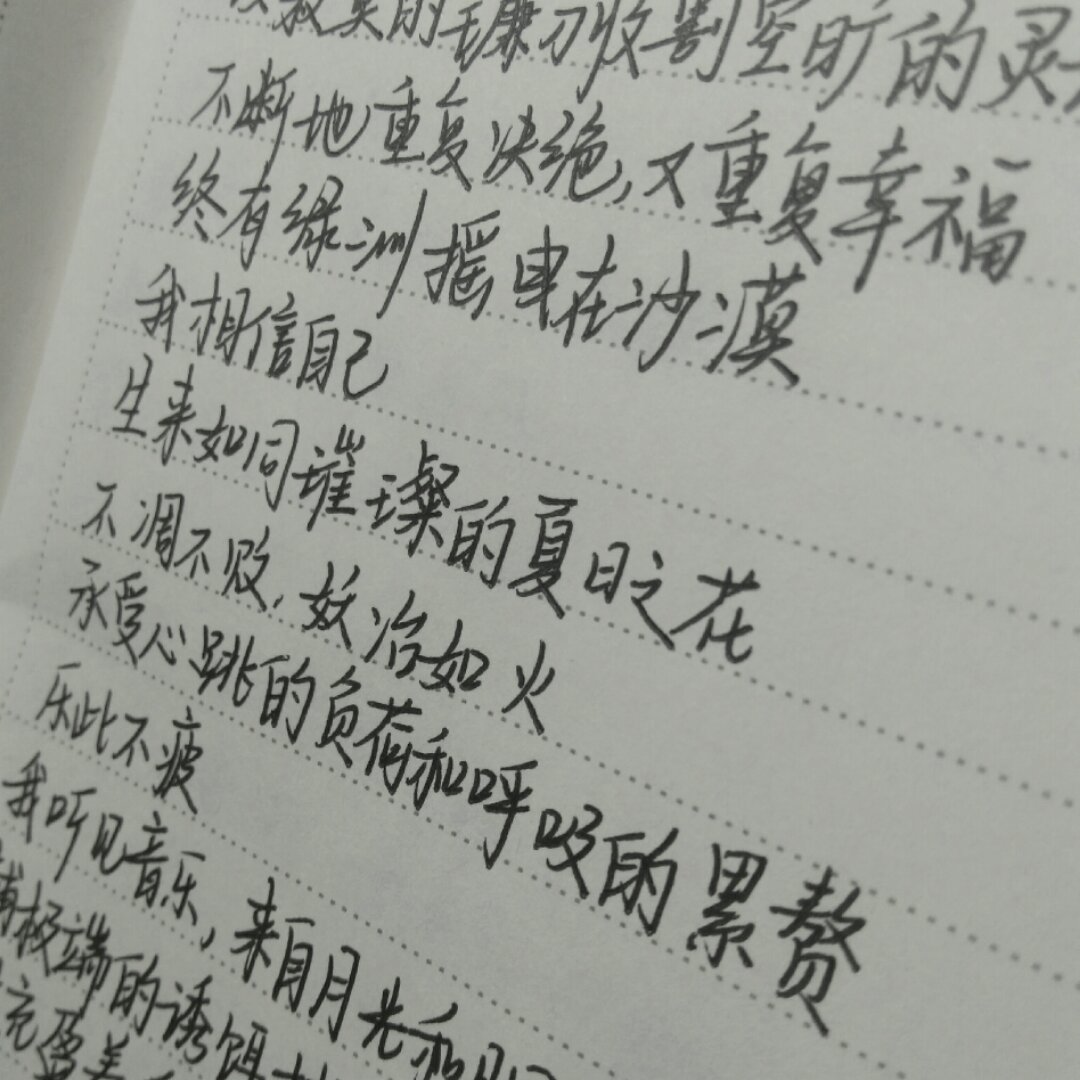 寂寞的镰刀收割空旷的灵
不断地重复决绝,又重复幸福
终有绿洲摇曳在沙漠
我相信自己
生来如同璀璨的夏日之花
不凋不败,妖冶如火
承受心跳的负荷和呼吸的累赘
乐此不疲
我听见音乐,来自月光和
极端的诱饵
充盈着